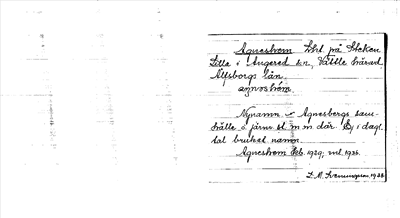 Agneshem Lht på Stcken
Lilla i Angered sn, Vättle härad
Älfsborgs län.
agnoshäm
Nynamn - Agnesbergs sam-
hälle o järnv.st. m m där. Ej i dagl.
tal brukat namn.
Agneshem Jeb. 1929; ml. 1936.
1938